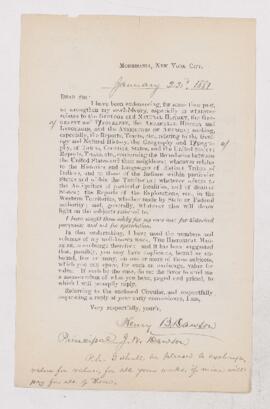 MORRISANIA, NEW YORK CITY.
January 22d. 1881
DEAR SIR:
I have been endeavoring, for some time past,
to strengthen my working library, especially in whatever
relates to the GEOLOGY and NATURAL HISTORY, the GEOGRAPHY
and the ABORIGINAL HISTORY and
LANGUAGES, and the ANTIQUITIES OF AMERICA; seeking,
especially, the Reports, Tracts, etc., relating to the Geology
and Natural History, the Geography and
of Towns, Counties, States, and the United States;
Reports, Tracts, etc., concerning the Boundaries between
the United States and their neighbors; whatever relates
to the Histories and Languages of Tribes of
Indians, and to those of the Indians within particular
States and within the Territories; whatever relates to
the Antiquities of particular localities, and of
States; the Reports of the Explorations, etc., in
the Western Territories, whether made by State or Federal
authority; and, generally, whatever else will throw
light on the subjects referred to.
I have sought these solely for my own use for historical
purposes and not for speculation.
In this undertaking, I have used the numbers and
volumes of my well-known work, THE HISTORICAL MAGAZINE,
in exchange therefor; and it has been suggested
that, possibly, you may have duplicates, bound or unbound,
few or many, on one or more of these subjects,
which you can spare, for such an exchange, value for
value. If such be the case, do me the favor to send me
a memorandum of what you have, paged and priced, to
which I will promptly reply.
Referring to the enclosed Circular, and respectfully
requesting a reply at your early convenience, I am,
Very respectfully, yours,
Henry B. Dawson
Principal J. W. Dawson
P.S. I shall be pleased to exchange,
value for value, for all your works, if mine will
pay for all of them.